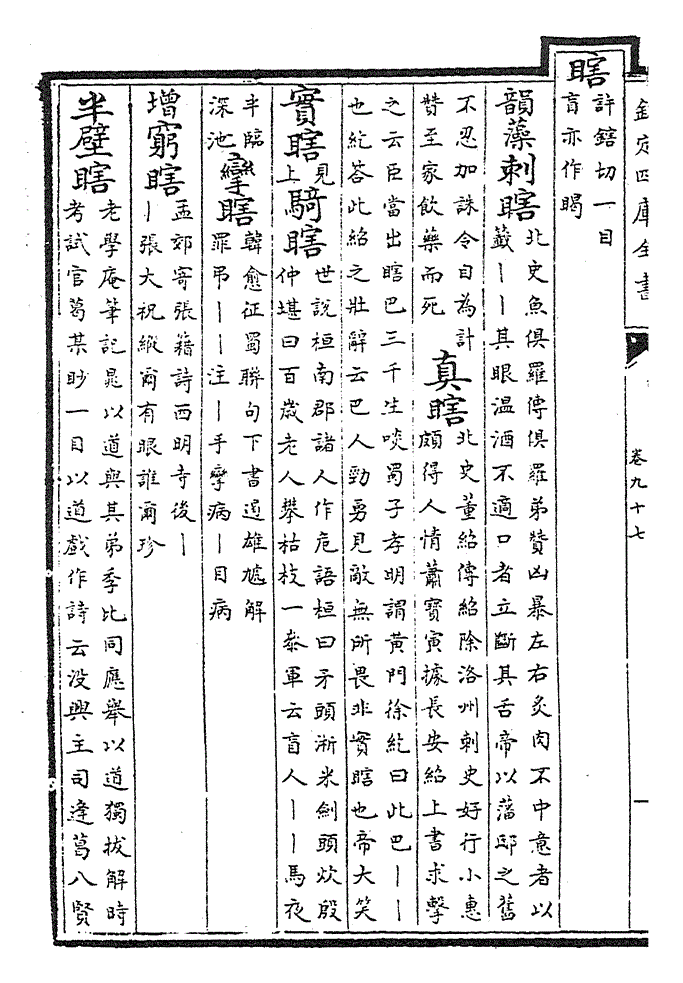 欽定四庫全書
卷九十七
一
瞎
許鎋切一目
盲亦作
韻藻刺瞎
北史魚俱羅傳俱羅弟贊凶暴左右炙肉不中意者以
籤丨丨其眼温酒不適口者立斷其舌帝以藩邸之舊
不忍加誅令自為計
贊至家飲藥而死
真瞎
北史董紹傳紹除洛州刺史好行小惠
頗得人情蕭寶寅據長安紹上書求擊
之云臣當出瞎巴三千生啖蜀子孝明謂黄門徐紇曰此巴丨丨
也紇荅此紹之壯辭云巴人勁勇見敵無所畏非實瞎也帝大笑
實瞎
見
上
騎瞎
世説桓南郡諸人作危語桓曰矛頭淅米劍頭炊殷
仲堪曰百嵗老人攀枯枝一叅軍云盲人丨丨馬夜
半臨
深池
攣瞎
韓愈征蜀聯句下書遏雄虓解
罪弔丨丨注丨手攣病丨目病
增窮瞎
孟郊寄張籍詩西明寺後丨
丨張大祝縱爾有眼誰爾珍
半壁瞎
老學庵筆記晁以道與其弟季比同應舉以道獨拔解時
考試官葛某眇一目以道戲作詩云没興主司逢葛八賢